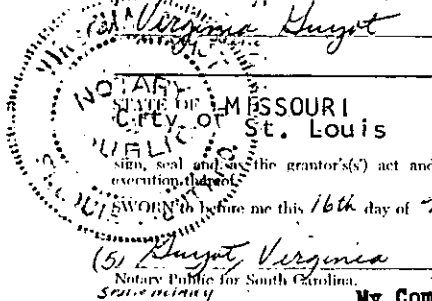 (5) Virginia Guyot
NOTARY
PUBLIC
STATE OF MISSOURI
City of St. Louis
sign, seal and as the grantor's(s') act and
execution thereof.
SWORN to before me this 16th day of
(5) Guyot, Virginia
Notary Public for South Carolina.
My Com